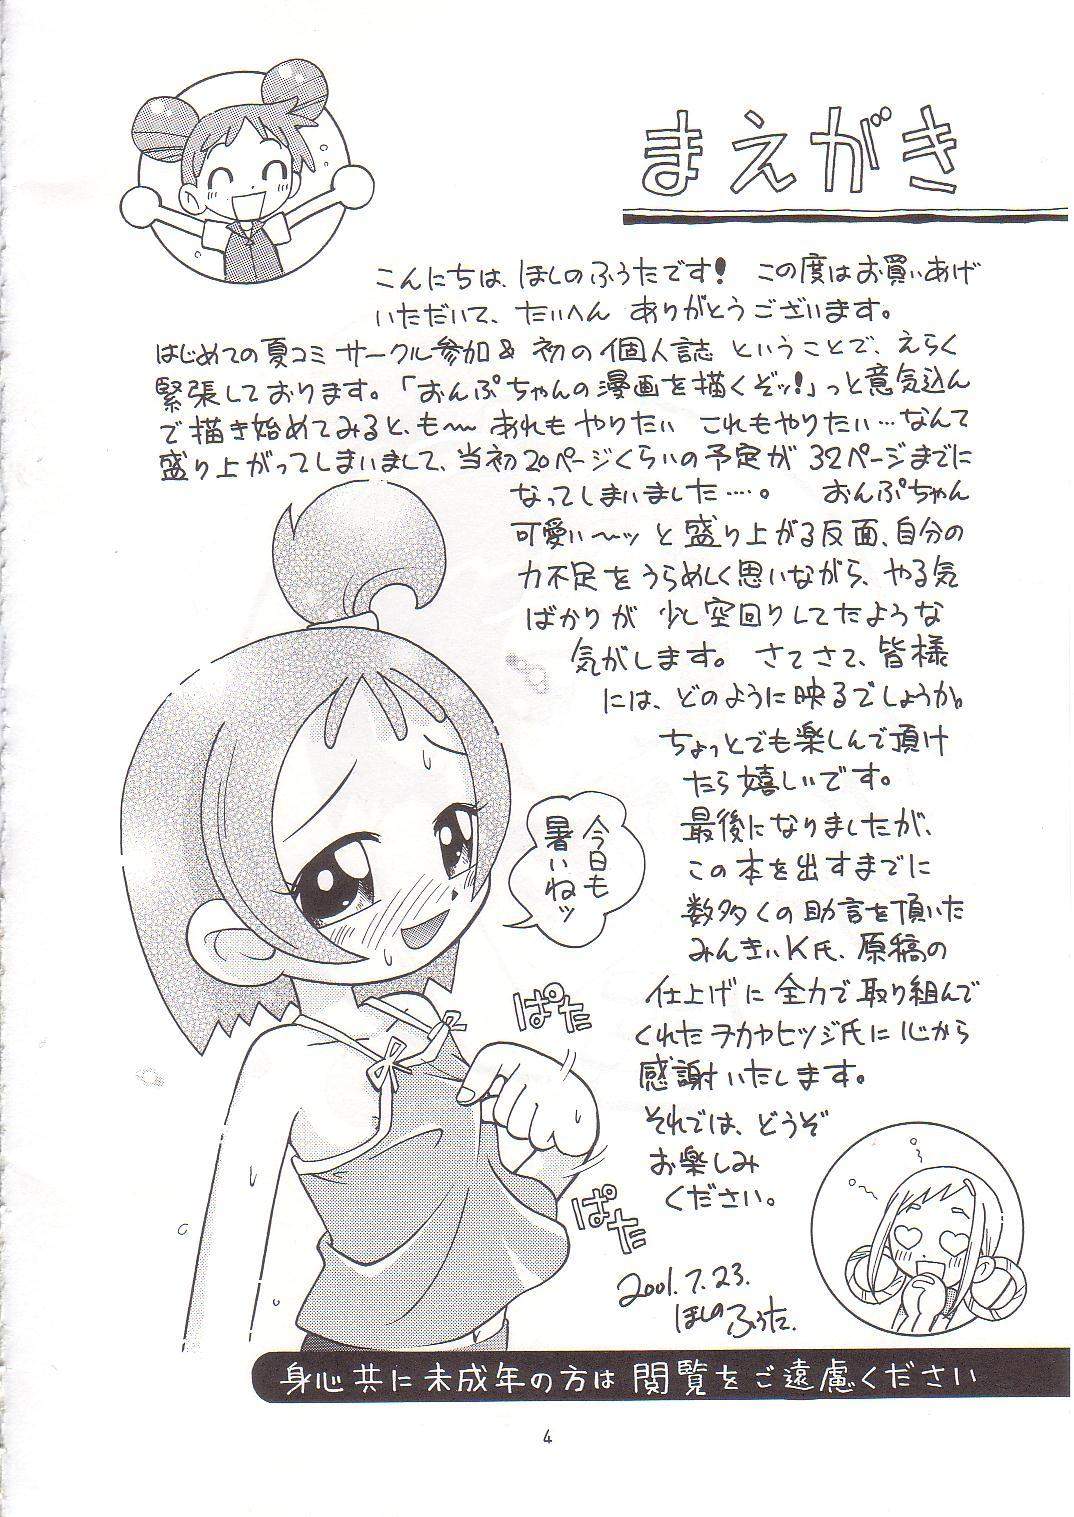 まえがき
こんにちは、ほしのふうたです! この度はお買いあげ
いただいて、たいへん ありがとうございます。
はじめての夏コミ サークル参加& 初の個人誌 ということで、えらく
緊張しております。「おんぷちゃんの漫画を描くぞッ!」っと意気込ん
で描き始めてみると、も〜 あれもやりたい これもやりたい…なんて
盛り上がってしまいまして、当初20ページくらいの予定が 32ページまでに
なってしまいました…。 おんぷちゃん
可愛い〜ッ と盛り上がる反面、自分の
力不足をうらめしく思いながら、やる気
ばかりが 少し空回りしてたような
気がします。 さてさて、皆様
には、どのように映るでしょうか。
ちょっとでも楽しんで頂け
たら嬉しいです。
最後になりましたが、
この本を出すまでに
数多くの助言を頂いた
みんきぃK氏、原稿の
仕上げに全力で取り組んで
くれたヲカヤヒツジ氏に心から
感謝いたします。
それでは、どうぞ
お楽しみ
ください。
2001.7.23.
ほしのふうた.
今日も
暑いねッ
ぱた
ぱた
身心共に未成年の方は閲覧をご遠慮ください
4